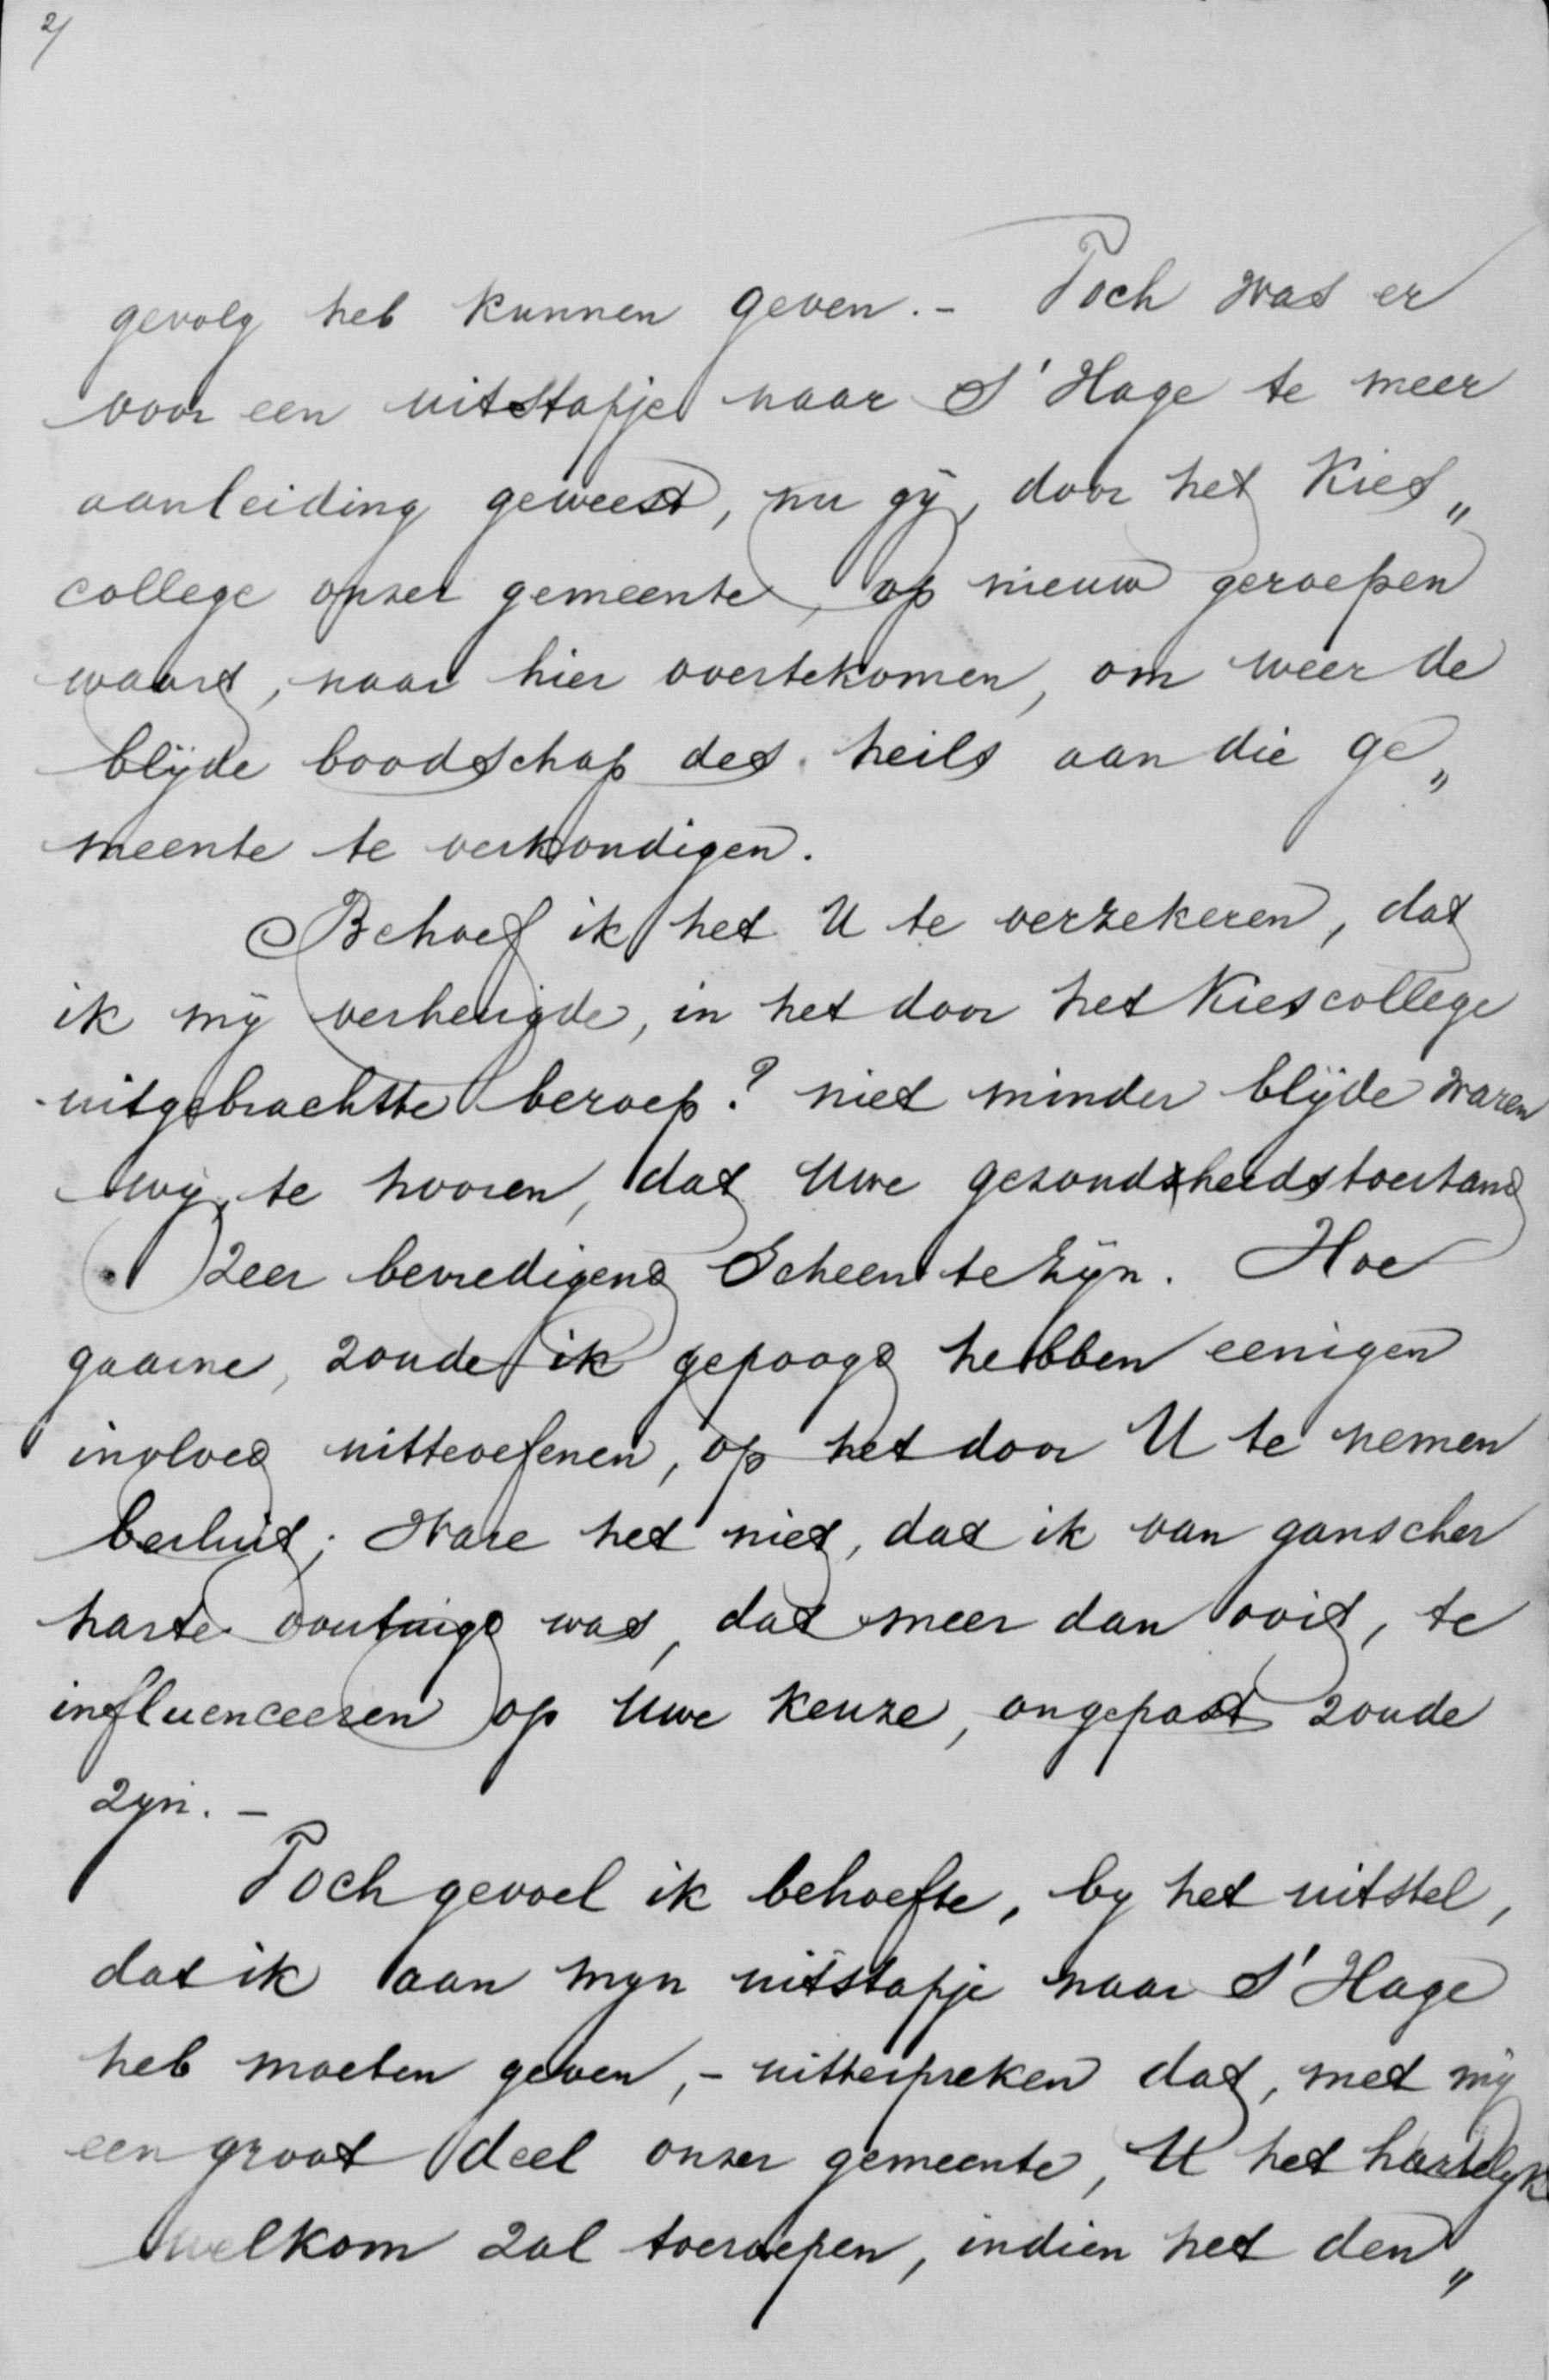 2/
gevolg heb kunnen geven. - Toch was er
voor een uitstapje naar S'Hage te meer
aanleiding geweest, nu gij, door het Kies„
college onzer gemeente, op nieuw geroepen
waart, naar hier overtekomen, om weer de
blijde boodschap des heils aan die ge„
meente te verkondigen.
Behoef ik het U te verzekeren, dat
ik mij verheugde, in het door het Kiescollege
uitgebrachtte beroep? niet minder blijde waren
wij, te hooren, dat Uwe gezondheidstoestand
zeer bevredigend Scheen te zijn. Hoe
gaarne, zoude ik gepoogd hebben eenigen
invloed uitteoefenen, op het door U te nemen
besluit; Ware het niet, dat ik van ganscher
harte overtuigd was, dat meer dan ooit, te
influenceeren op Uwe keuze, ongepast zoude
zyn. -
Toch gevoel ik behoefte, by het uitstel,
dat ik aan myn uitstapje naar S'Hage
heb moeten geven, - uittespreken dat, met mij
een groot deel onzer gemeente, U het hartelyk
welkom zal toeroepen, indien het den„